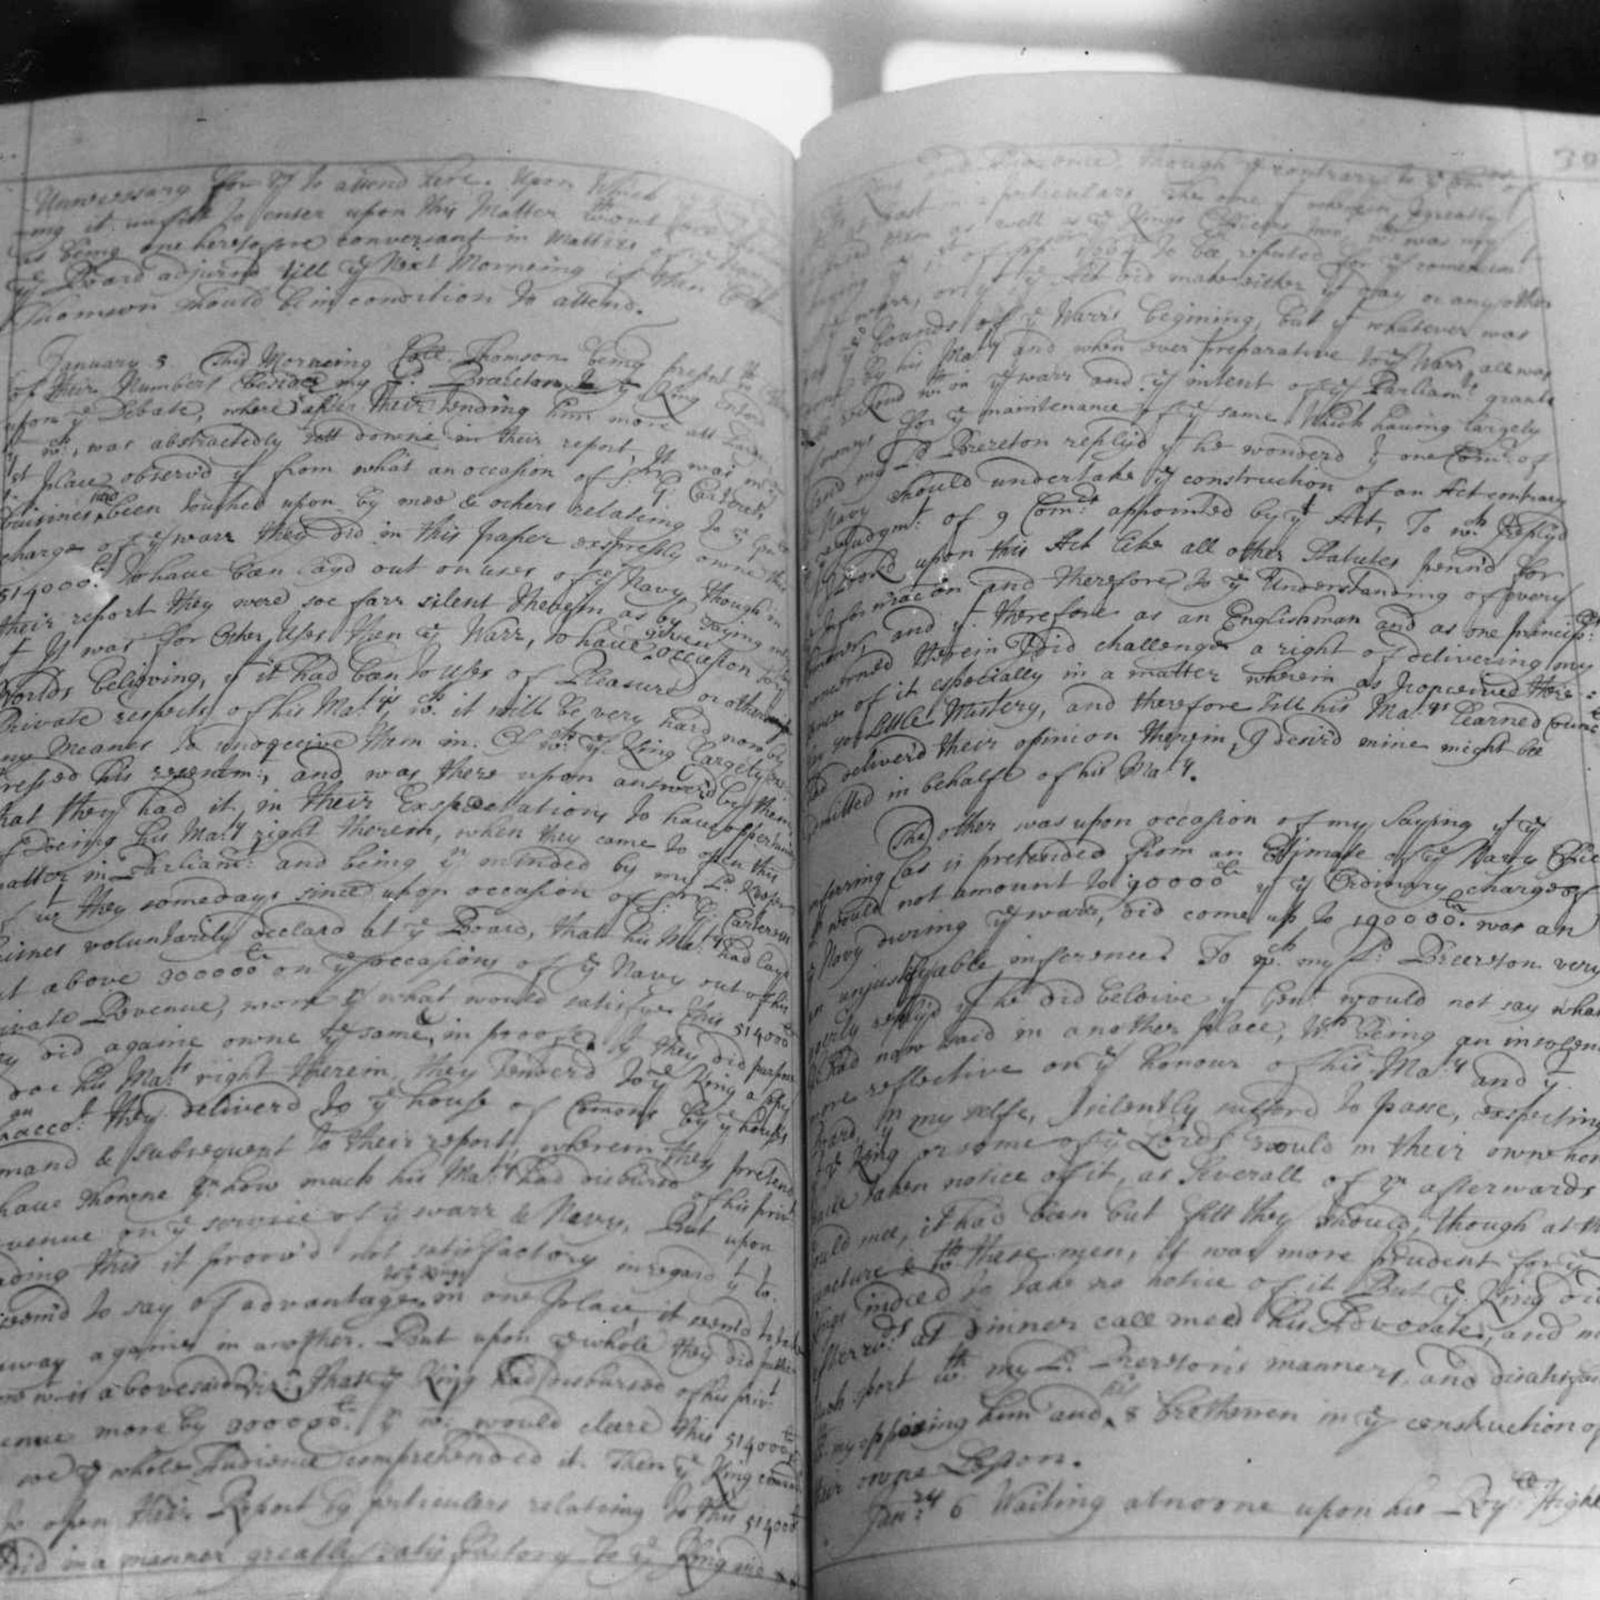 Unnecessary for ym to attend here. Upon Which
ing it unfitt to enter upon this Matter wthout
as being one heretofore conversant in Matters of
ye Board adjurnd till ye Next Morneing if then Coll
Thomson should be in condition to attend.
January 5 This Morneing Coll. Thomson being present
of their Number besides my Ld. Brereton ye King
upon ye Debate, where after their sending him more
wch. was abstractedly sett downe in their report, It was my
1st place observ'd yt from what an occasion of Sr. G. Carteret's
buisines had been touched upon by mee & others relating to ye
charge of ye warr they did in this paper expressly owne this
514000li to have been layd out on uses of ye Navy, though in
their report they were soe farr silent therein as by saying only
yt It was for Other Uses then ye Warr, to have given occasion for ye
Worlds believing, yt it had been to Uses of Pleasure or other
Private respects of his Maty. wch. it will be very hard now by
any Meanes to undeceive them in. Of wch. ye King largely ex-
pressed his resentmt., and was there upon answerd by them,
that they had it in their Expectations to have oppertunity
of Doeing his Maty right therein, when they came to open this
matter in Parliamt. and being ym minded by my Ld. Keeper
of wt they somedays since upon occasion of Sr. G. Carterets
buisines voluntarily declard at ye Board, that his Maty had layd
out above 300000li on ye occasions of ye Navy out of his
private Revenue, more yn what would satisfye this 514000li
They did againe owne ye same, in proofe yt they did purpose
to doe his Maty right therein, they tenderd to ye King a copy
of an acct. they deliverd to ye house of Comons by ye house's
demand & subsequent to their report, wherein they pretend
to have showne ym how much his Maty had disbursd of his priv:
Revenue on ye service of ye warr & Navy. But upon
reading this it proov'd not satisfactory in regard yt wt.
seem'd to say of advantage to ye King in one place, it seemd to take
away againe in another. But upon ye whole they did
now wt. is abovesaid viz: That ye King had disbursed of his priv.
Revenue more by 300000li. yn wt. would cleare this 514000li
soe ye whole Audience comprehended it. Then ye King
to open their Report by perticulers relateing to this 514000li
did in a manner greatly satisfactory to ye King and
30
King and Audience, though ye contrary to ye Comrs of
at least in 2 perticulars. The one of wherein I greatly
them as well as ye Kings Officers was my
1st of 7br 1664 to be reputed for ye comencemt
of ye warr, or yt ye Act did make either yt Day or any other
ye bounds of ye Warrs begining, but yt whatever was
by his Maty and when ever preparative to ye Warr, all was
wth in ye warr and ye intent of ye Parliamt. grants
for ye maintenance of ye same. Which having largely
and my Ld. Brereton reply'd yt he wonderd yt one Comr. of
Navy should undertake ye construction of an Act contrary
Judgmt. of 9 Comrs. appointed by yt Act, To wch. I reply'd
I look'd upon this Act like all other Statutes penn'd for
Information and therefore to ye Understanding of every
and yt. therefore as an Englishman and as one principally
concerned therein I did challenge a right of delivering my
sence of it especially in a matter wherein as I conceived there is
soe Little Mistery, and therefore till his Matys Learned Councel
had deliverd their opinion therein, I desir'd mine might bee
admitted in behalfe of his Maty.
The other was upon occasion of my Saying yt ye
inferring (as is pretended from an Estimate of ye Navy Office
would not amount to 90000li yt ye Ordinary charge of
Navy during ye warr, did come up to 190000li. was an
unjustifyable inference. To wch. my Ld. Brereton very
reply'd yt he did beleive yt Gent. would not say what
had now said in another place, Wch being an insolence
more reflective on ye honour of his Maty and yt.
heard yn my selfe, I silently suffer'd to passe, expecting
ye King or some of ye Lords would in their owne
have taken notice of it, as Severall of ym afterwards
told mee, it had been but fitt they should, though at
juncture & wth these men, it was more prudent for ye
Kings indeed to take no notice of it. But ye King did
at Dinner call mee his Advocate, and
much sport wth. my Ld. Brereton's manners, and
at my opposing him and his 8 brethren in ye construction of
their owne Lesson.
Janry 6 Waiting at noone upon his Royll High